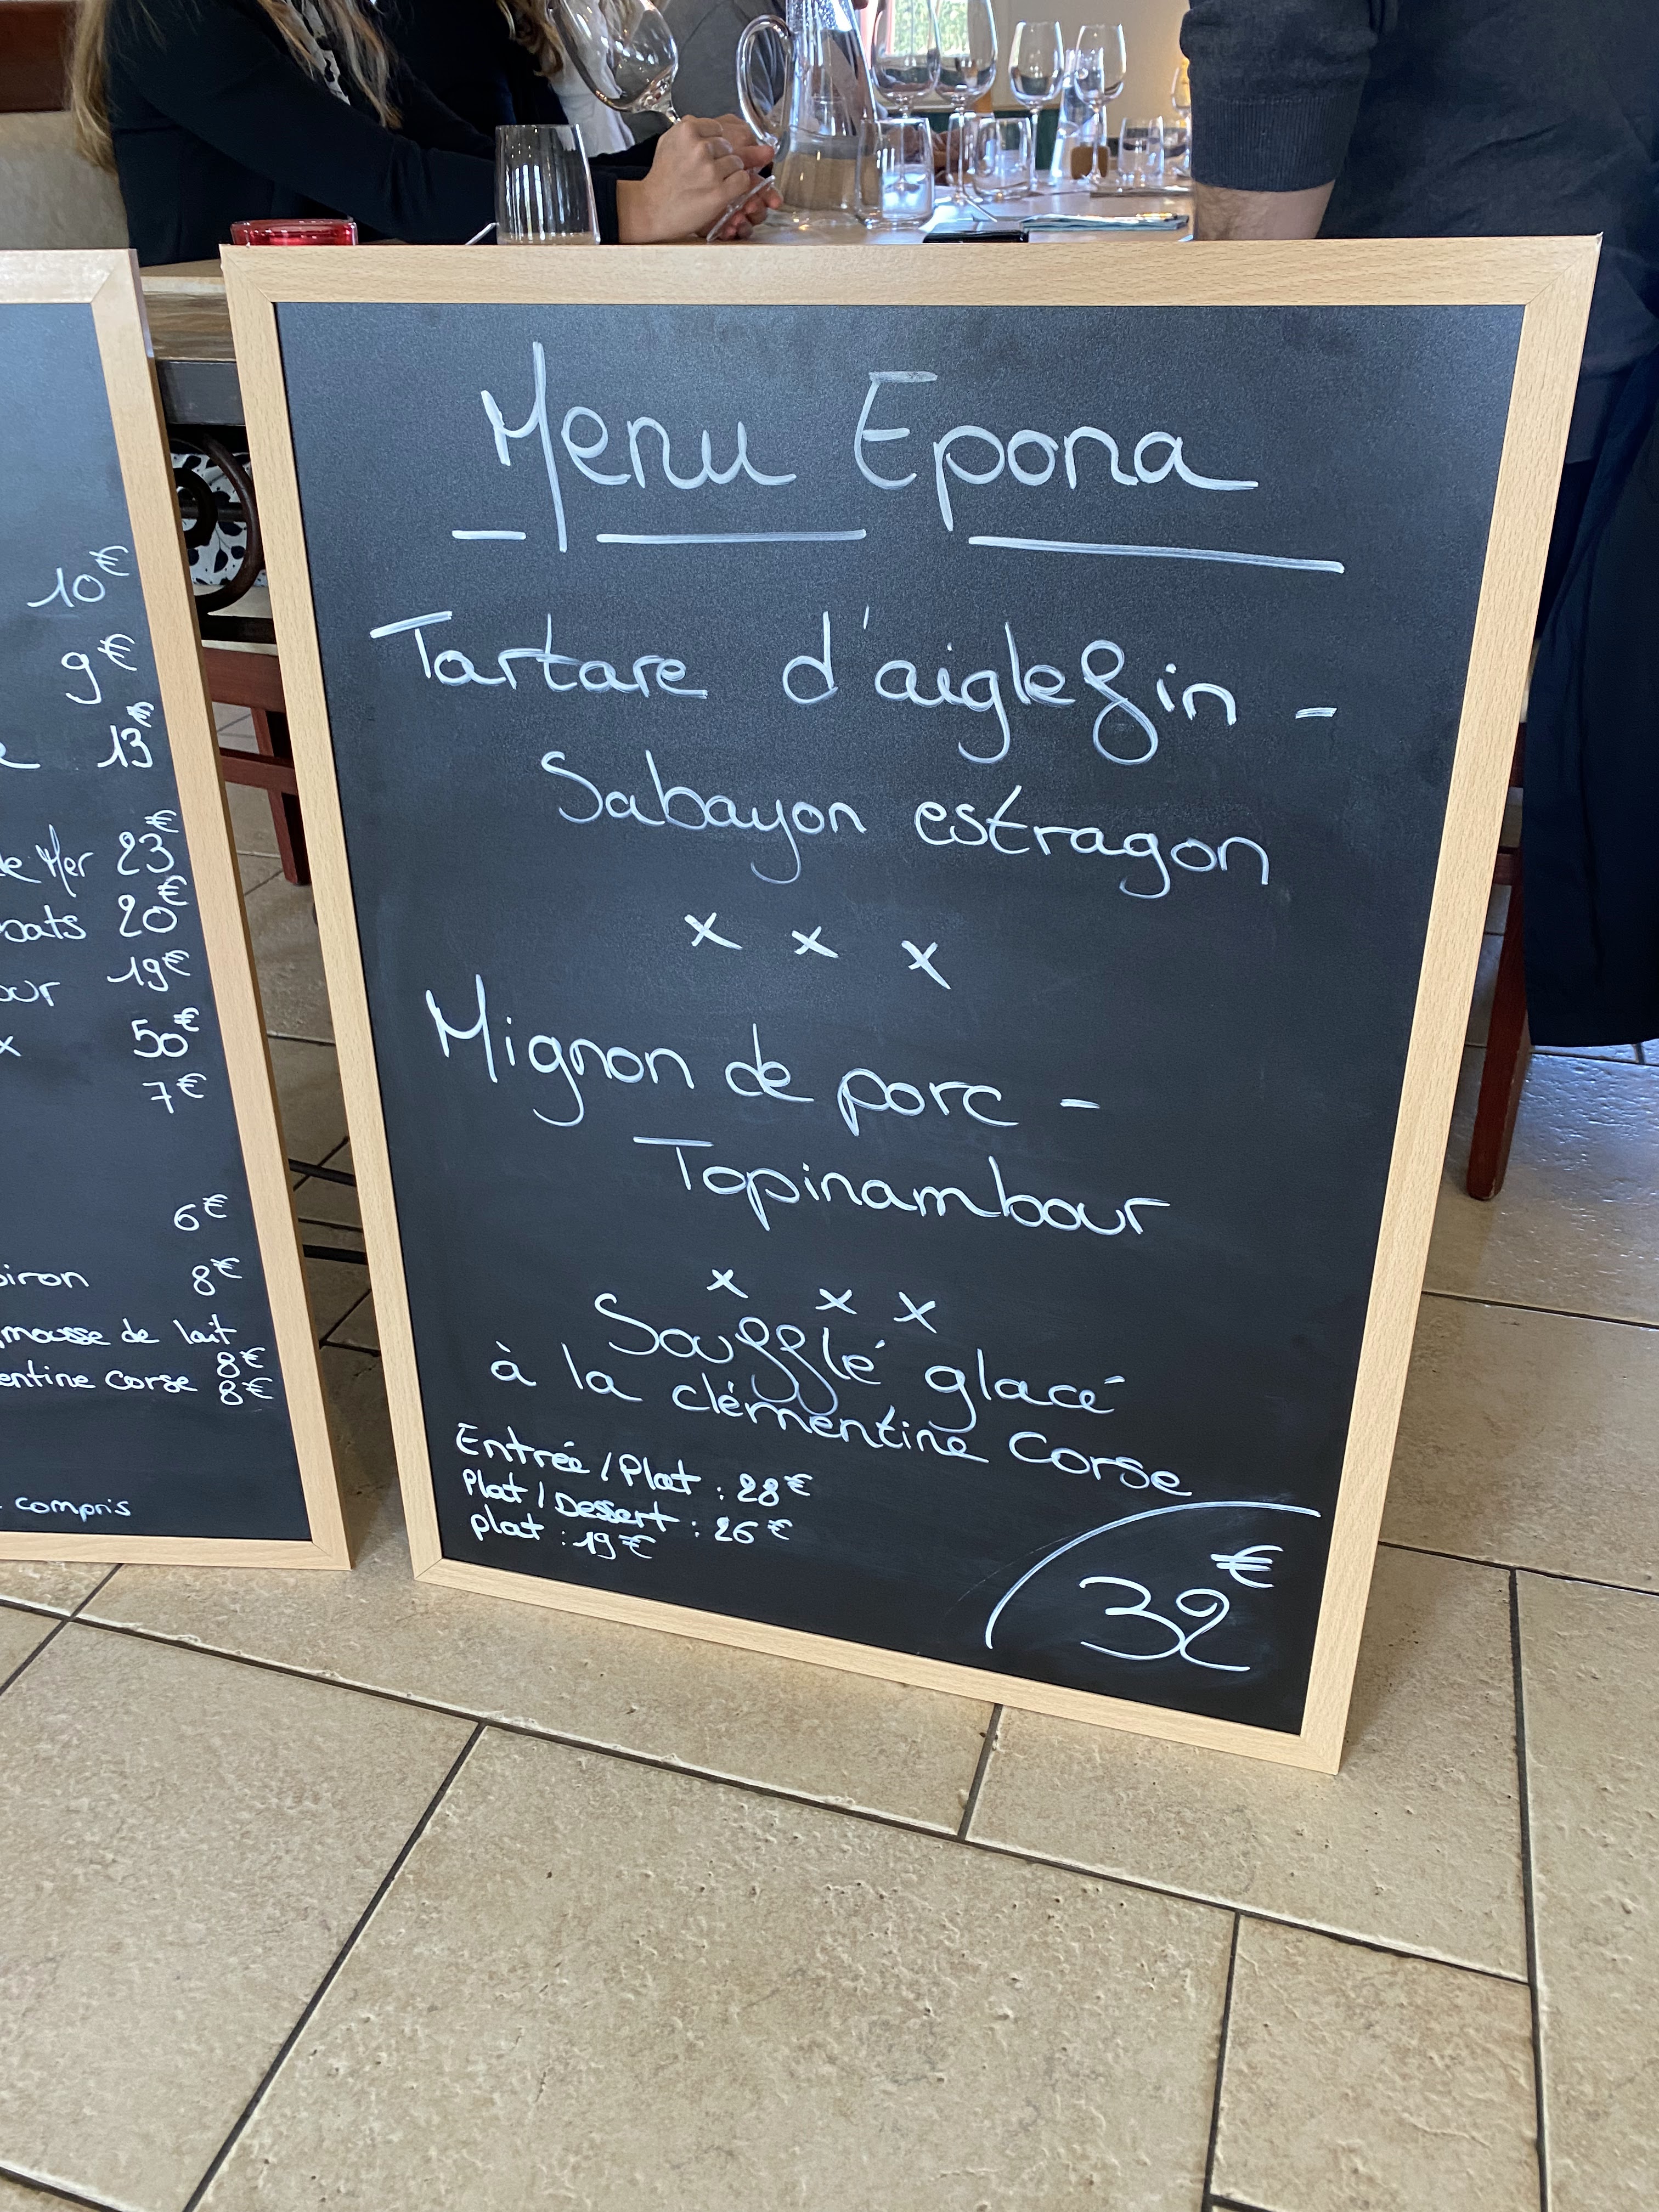 10€
9€
13€
de Mer 23€
20€
19€
50€
7€
6€
8€
mousse de lait
8€
Corse 8€
compris
Menu Epona
Tartare d'aiglefin -
Sabayon estragon
x x x
Mignon de porc -
Topinambour
x x x
Soufflé glacé
à la clémentine Corse
Entrée / Plat : 28€
Plat / Dessert : 26€
plat : 19€
32€